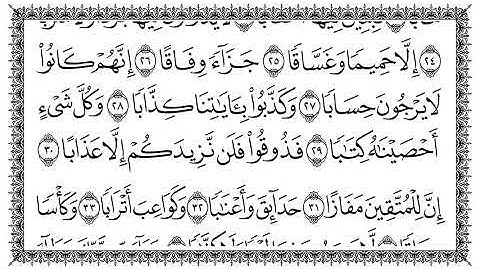 ﴿٢٤﴾ إِلَّا حَمِيمًا وَغَسَّاقًا ﴿٢٥﴾ جَزَآءً وِفَاقًا ﴿٢٦﴾ إِنَّهُمْ كَانُوا۟
لَا يَرْجُونَ حِسَابًا ﴿٢٧﴾ وَكَذَّبُوا۟ بِـَٔايَٰتِنَا كِذَّابًا ﴿٢٨﴾ وَكُلَّ شَىْءٍ
أَحْصَيْنَٰهُ كِتَٰبًا ﴿٢٩﴾ فَذُوقُوا۟ فَلَن نَّزِيدَكُمْ إِلَّا عَذَابًا ﴿٣٠﴾
إِنَّ لِلْمُتَّقِينَ مَفَازًا ﴿٣١﴾ حَدَآئِقَ وَأَعْنَٰبًا ﴿٣٢﴾ وَكَوَاعِبَ أَتْرَابًا ﴿٣٣﴾ وَكَأْسًا